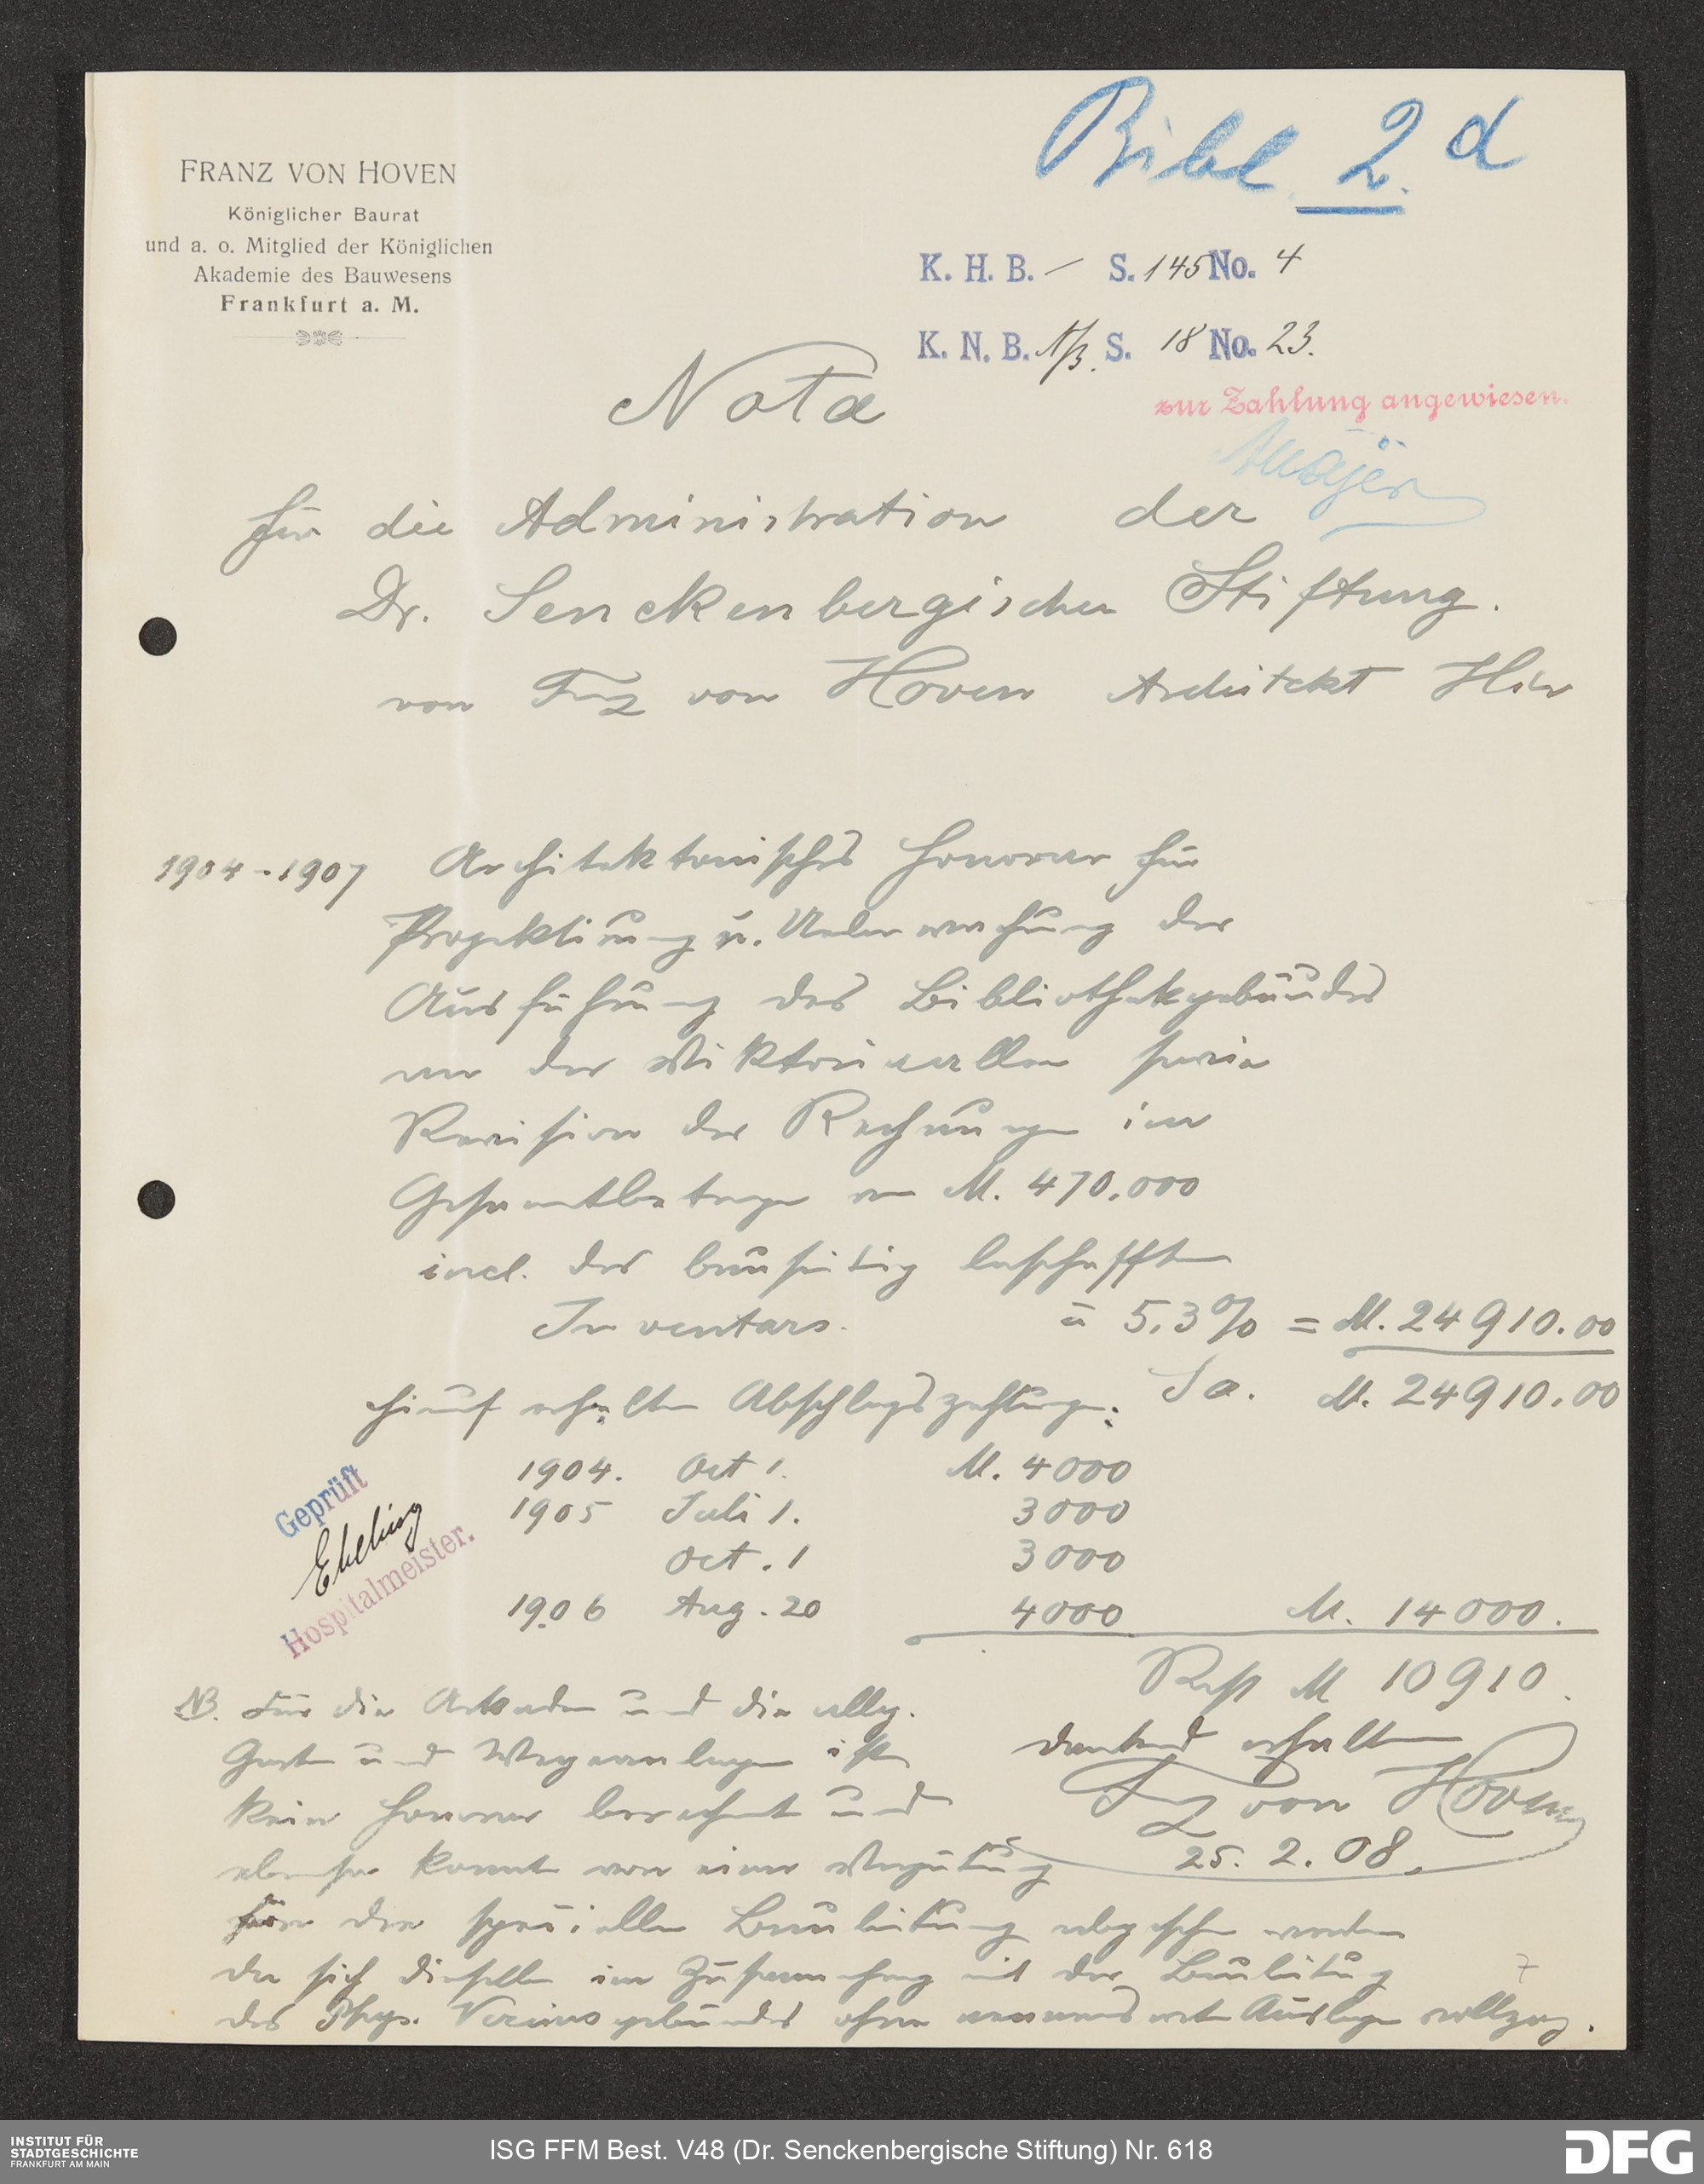 Bibl. 2. d
FRANZ VON HOVEN
Königlicher Baurat
und a. o. Mitglied der Königlichen
Akademie des Bauwesens
Frankfurt a. M.
K. H. B. — S. 145 No. 4
K. N. B. S. 18 No. 23.
zur Zahlung angewiesen.
Nota
für die Administration der
Dr. Senckenbergischen Stiftung.
von Frz von Hoven Architekt Hier
1904-1907 Architektonisches Honorar für
Projektierung u. Ueberwachung der
Ausführung des Bibliothekgebäudes
an der Viktoriaallee sowie
Revision der Rechnungen im
Gesamtbetrage von M. 470.000
incl. des bauseitig beschafften
Inventars. à 5,3% = M. 24910.00
Sa. M. 24910.00
hierauf erhalten Abschlagszahlungen:
1904. Oct 1. M. 4000
1905 Juli 1. 3000
Oct. 1 3000
1906 Aug. 20 4000 M. 14000.
Geprüft
Ebeling
Hospitalmeister.
Rest M 10910.
dankend erhalten
Frz von Hoven
25. 2. 08.
NB. Für die Arkaden und die allg.
Garten und Wegeanlagen ist
kein Honorar berechnet und
ebenso konnte von einer Vergütung
für die spezielle Bauleitung abgesehen werden
da sich dieselbe im Zusammenhang mit der Bauleitung
des Phys. Vereinsgebäudes ohne nennenswerte Auslagen vollzog.
7
INSTITUT FÜR
STADTGESCHICHTE
FRANKFURT AM MAIN
ISG FFM Best. V48 (Dr. Senckenbergische Stiftung) Nr. 618
DFG